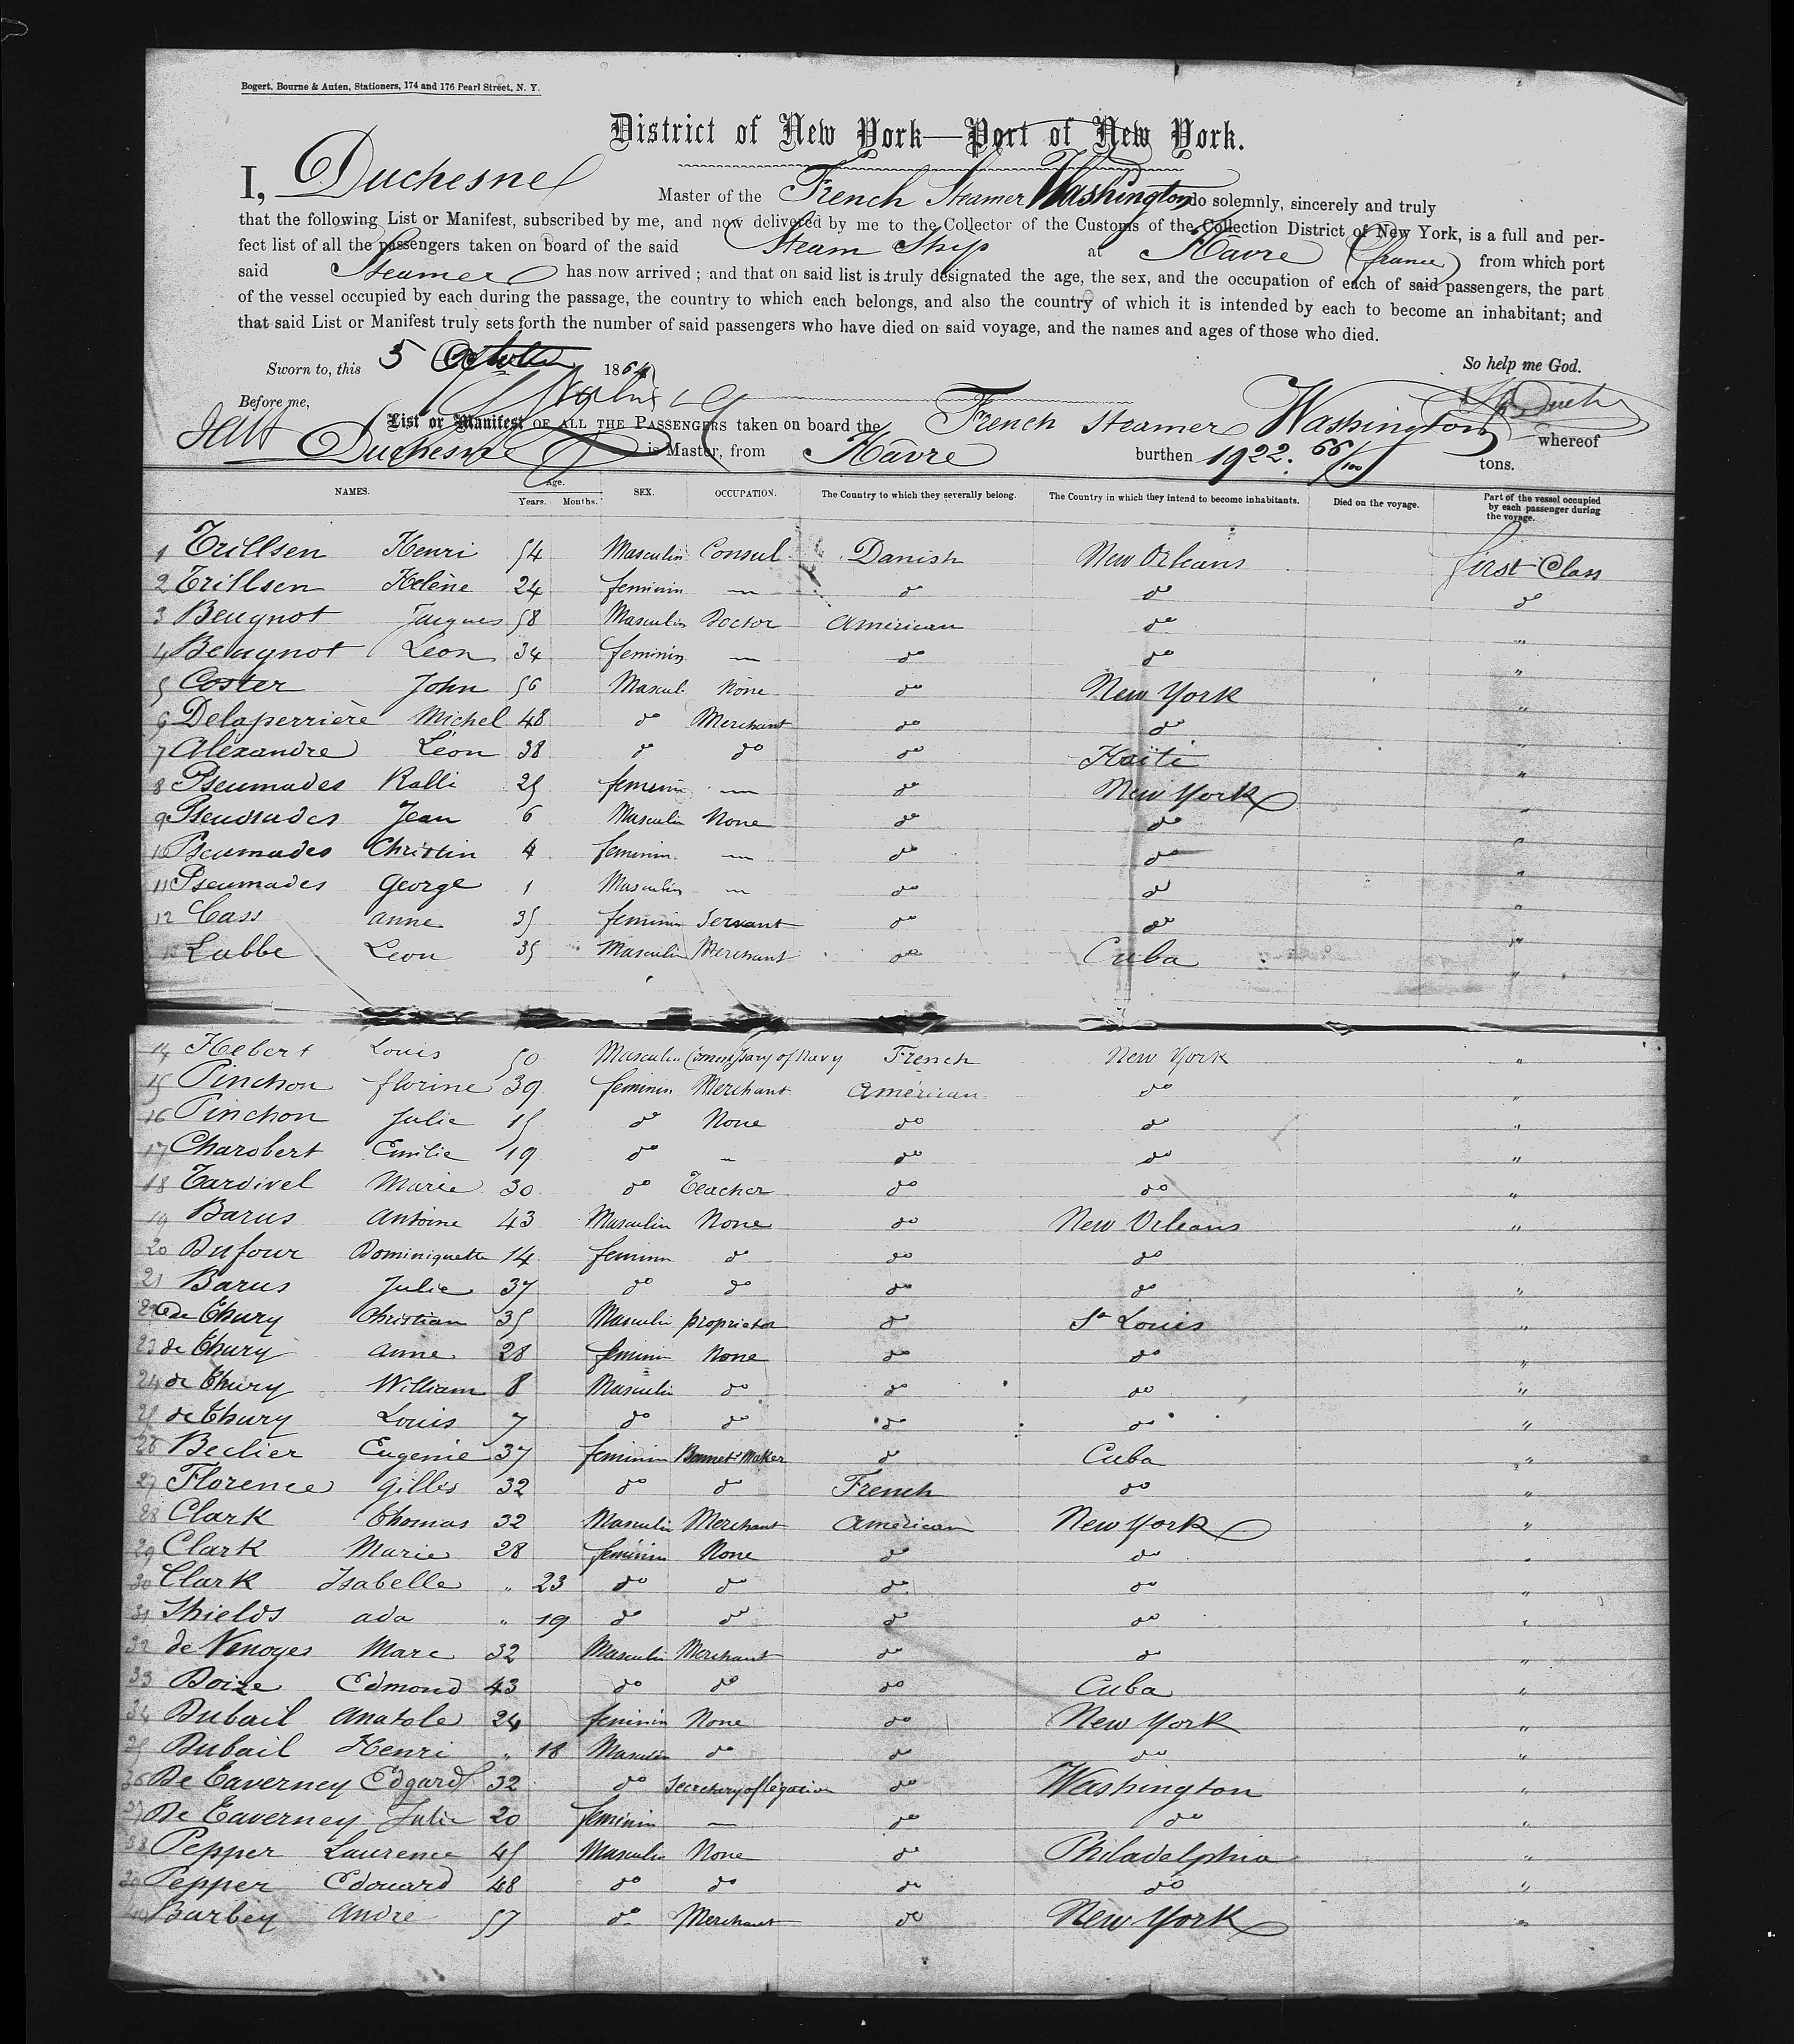 Bogert, Bourne & Auten, Stationers, 174 and 176 Pearl Street, N. Y.
District of New York—Port of New York.
I, Duchesne Master of the French Steamer Washington do solemnly, sincerely and truly
that the following List or Manifest, subscribed by me, and now delivered by me to the Collector of the Customs of the Collection District of New York, is a full and per-
fect list of all the passengers taken on board of the said Steam Ship at Havre (france) from which port
said Steamer has now arrived; and that on said list is truly designated the age, the sex, and the occupation of each of said passengers, the part
of the vessel occupied by each during the passage, the country to which each belongs, and also the country of which it is intended by each to become an inhabitant; and
that said List or Manifest truly sets forth the number of said passengers who have died on said voyage, and the names and ages of those who died.
Sworn to, this 5 October 1864 So help me God.
Before me,
List or Manifest OF ALL THE PASSENGERS taken on board the French Steamer Washington whereof
Duchesne is Master, from Havre burthen 1922. 66/100 tons.
NAMES. Age. Years. Months. SEX. OCCUPATION. The Country to which they severally belong. The Country in which they intend to become inhabitants. Died on the voyage. Part of the vessel occupied by each passenger during the voyage.
1 Trillsen Henri 54 Masculin Consul Danish New Orleans first Class
2 Trillsen Helène 24 feminin — do do do
3 Beugnot Jacques 58 Masculin Doctor American do "
4 Beugnot Leon 34 feminin — do do "
5 Coster John 56 Mascul. None do New York "
6 Delaperrière Michel 48 do Merchant do do "
7 Alexandre Léon 38 do do do Haïti "
8 Pseumades Ralli 25 feminin — do New York "
9 Pseumades Jean 6 Masculin None do do "
10 Pseumades Christin 4 feminin — do do "
11 Pseumades George 1 Masculin — do do "
12 Cass anne 35 feminin Servant do do "
13 Labbe Leon 35 Masculin Merchant do Cuba "
14 Hebert Louis 50 Masculin Commissary of Navy French New York "
15 Pinchon florine 39 feminin Merchant American do "
16 Pinchon Julie 15 do None do do "
17 Charobert Emilie 19 do — do do "
18 Tardivel Marie 30 do Teacher do do "
19 Barus Antoine 43 Masculin None do New Orleans "
20 Dufour Dominiquette 14 feminin do do do "
21 Barus Julie 37 do do do do "
22 de Thury Christian 35 Masculin proprietor do St Louis "
23 de Thury anne 28 feminin None do do "
24 de Thury William 8 Masculin do do do "
25 de Thury Louis 7 do do do do "
26 Beclier Eugenie 37 feminin Bonnet's Maker do Cuba "
27 Florence Gilles 32 do do French do "
28 Clark Thomas 32 Masculin Merchant American New York "
29 Clark Marie 28 feminin None do do "
30 Clark Isabelle " 23 do do do do "
31 Shields ada " 19 do do do do "
32 de Venoges Marc 32 Masculin Merchant do do "
33 Boize Edmond 43 do do do Cuba "
34 Dubail Anatole 24 feminin None do New York "
35 Dubail Henri " 18 Masculin do do do "
36 De Taverney Edgard 32 do Secretary of legation do Washington "
37 De Taverney Julie 20 feminin — do do "
38 Pepper Laurence 45 Masculin None do Philadelphia "
39 Pepper Edouard 48 do do do do "
40 Barbey Andre 57 do Merchant do New York "